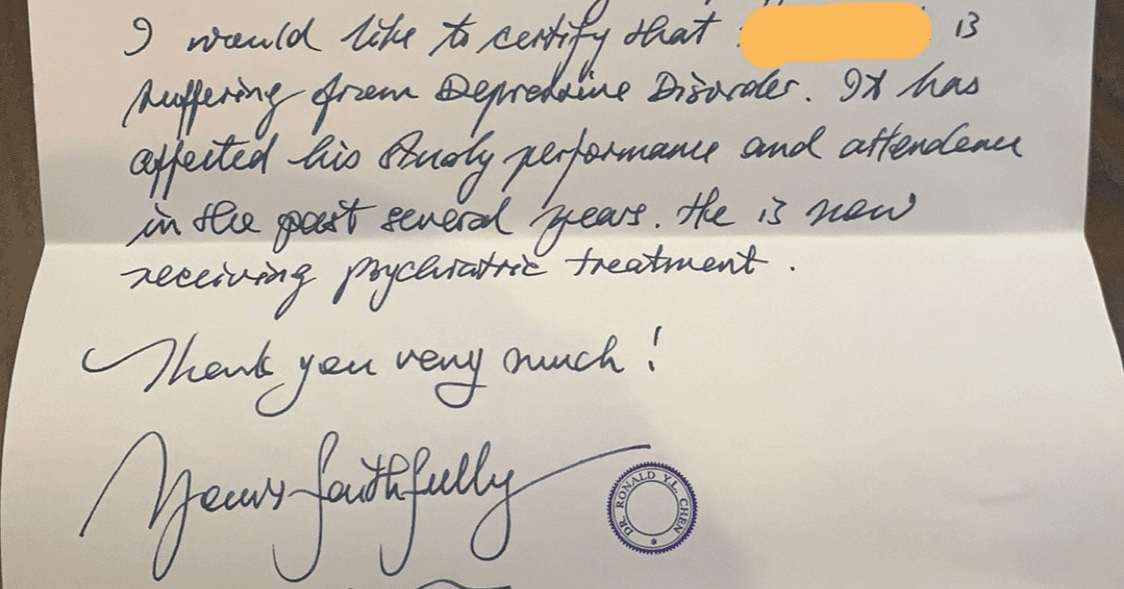 I would like to certify that is
suffering from Depressive Disorder. It has
affected his study performance and attendance
in the past several years. He is now
receiving psychiatric treatment.
Thank you very much!
Yours faithfully
DR. RONALD Y.L. CHEN